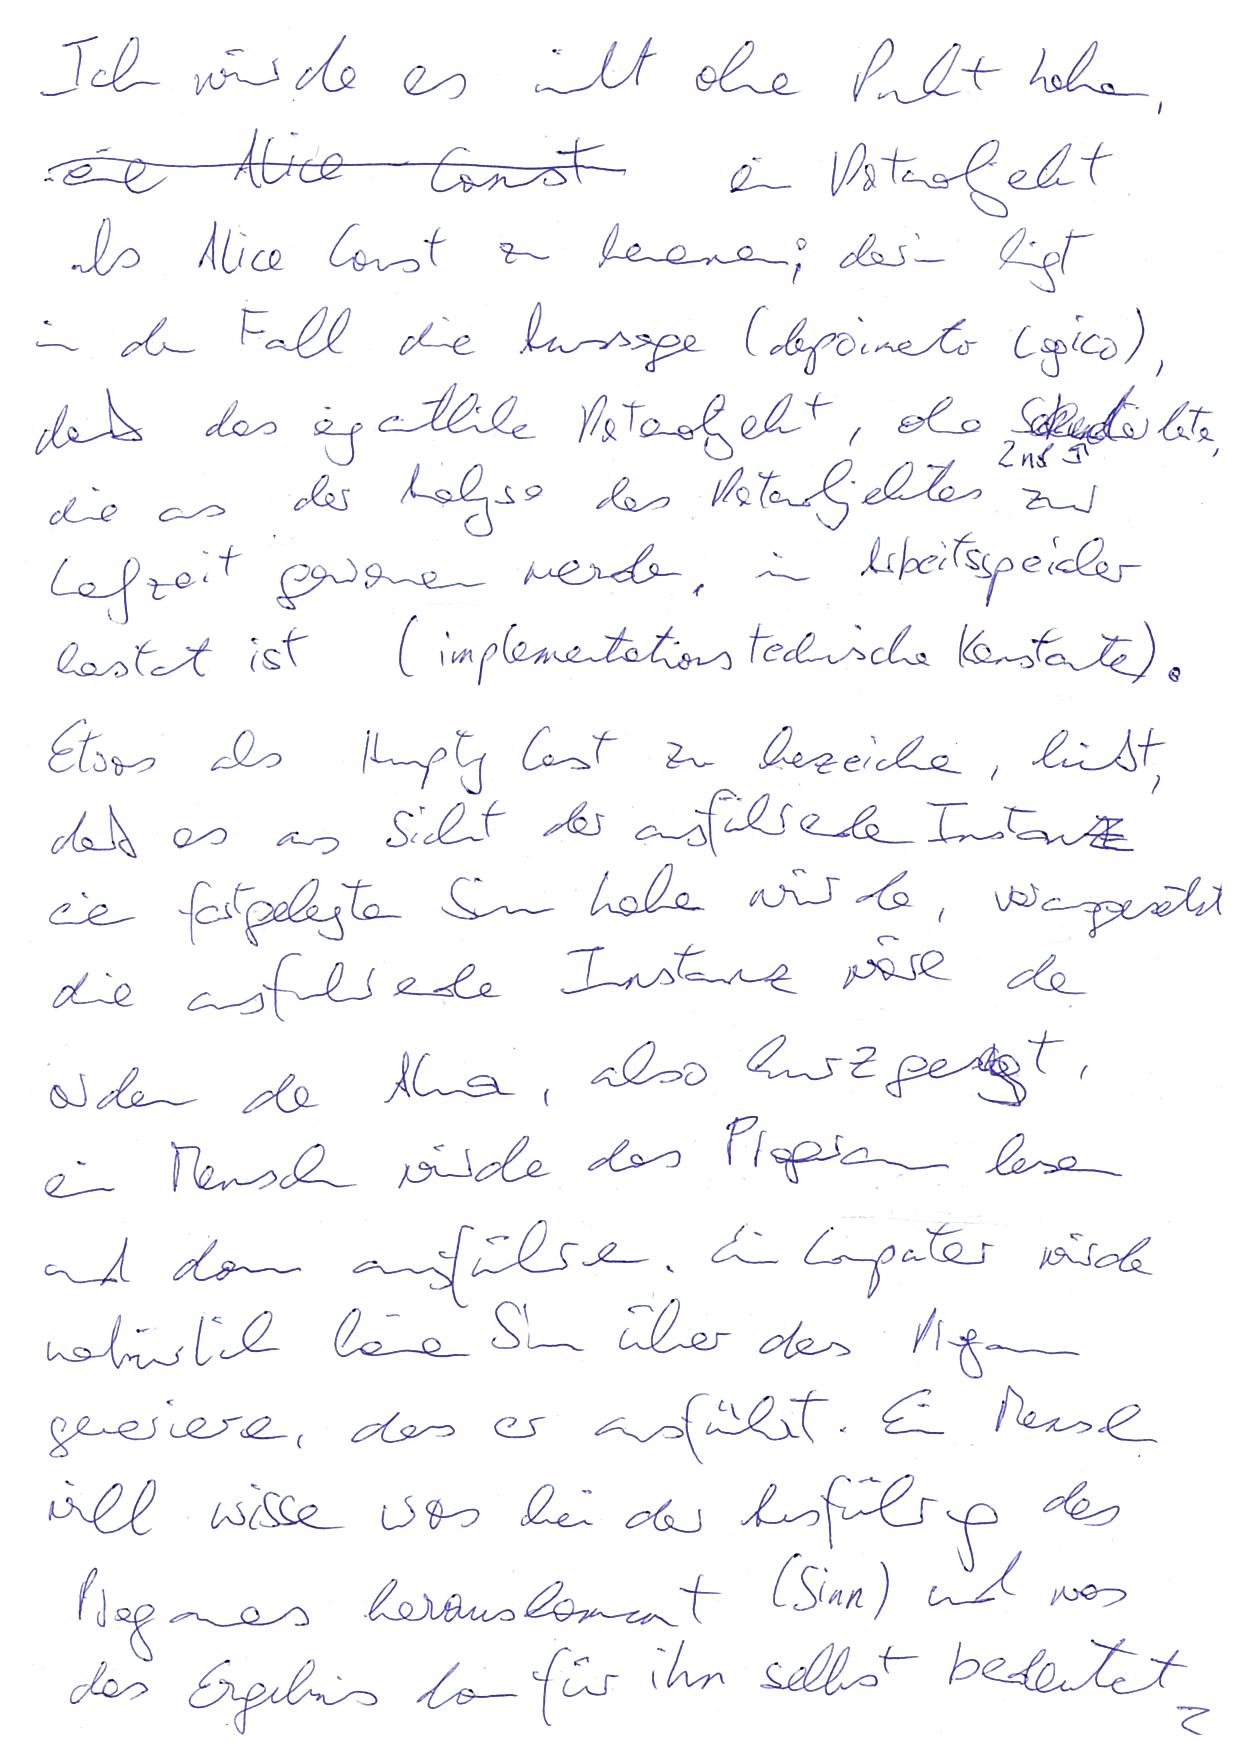 Ich würde es nicht ohne Punkt haben,
eine Alice Const ein Datenobjekt
als Alice Const zu benennen; darin liegt
in dem Fall die Aussage (depoimento lógico),
daß das eigentliche Datenobjekt, ohne Sekundärdaten,
die aus der Analyse des Datenobjektes zur
Laufzeit gewonnen werden, im Arbeitsspeicher
konstant ist (implementationstechnische Konstante).
Etwas als Humpty Const zu bezeichnen, heißt,
daß es aus Sicht der ausführenden Instanz
einen festgelegten Sinn haben würde, vorausgesetzt
die ausführende Instanz wäre
, also kurz gesagt,
ein Mensch würde das Programm lesen
und dann ausführen. Ein Computer würde
natürlich keinen Sinn über das Programm
generieren, das er ausführt. Ein Mensch
will wissen was bei der Ausführung des
Programmes herauskommt (Sinn) und was
das Ergebnis dann für ihn selbst bedeutet